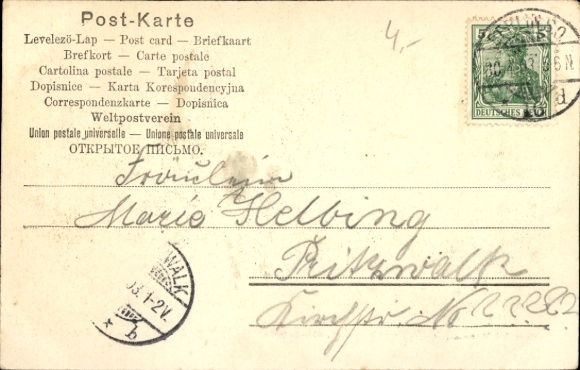 Post-Karte
Levelező-Lap — Post card — Briefkaart
Brefkort — Carte postale
Cartolina postale — Tarjeta postal
Dopisnice — Karta Korespondencyjna
Correspondenzkarte — Dopisnica
Weltpostverein
Union postale universelle — Unione postale universale
ОТКРЫТОЕ ПИСЬМО.
4,-
5
DEUTSCHES
Fräulein
Marie Helbing
Pritzwalk
Kirchstr. No
WALK
03. 1-2V.
* b